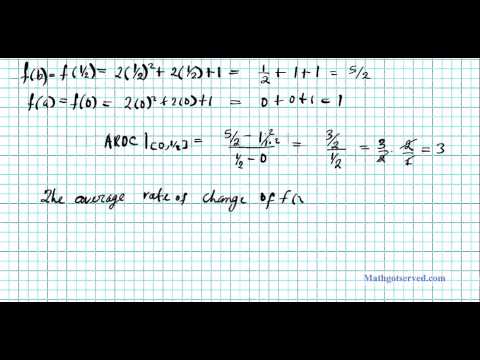 f(b) = f(1/2) = 2(1/2)² + 2(1/2) + 1 = 1/2 + 1 + 1 = 5/2
f(a) = f(0) = 2(0)² + 2(0) + 1 = 0 + 0 + 1 = 1
AROC |[0,1/2] = (5/2 - 1/1 · 2/2)/(1/2 - 0) = (3/2)/(1/2) = 3/2 · 2/1 = 3
The average rate of change of f(
Mathgotserved.com